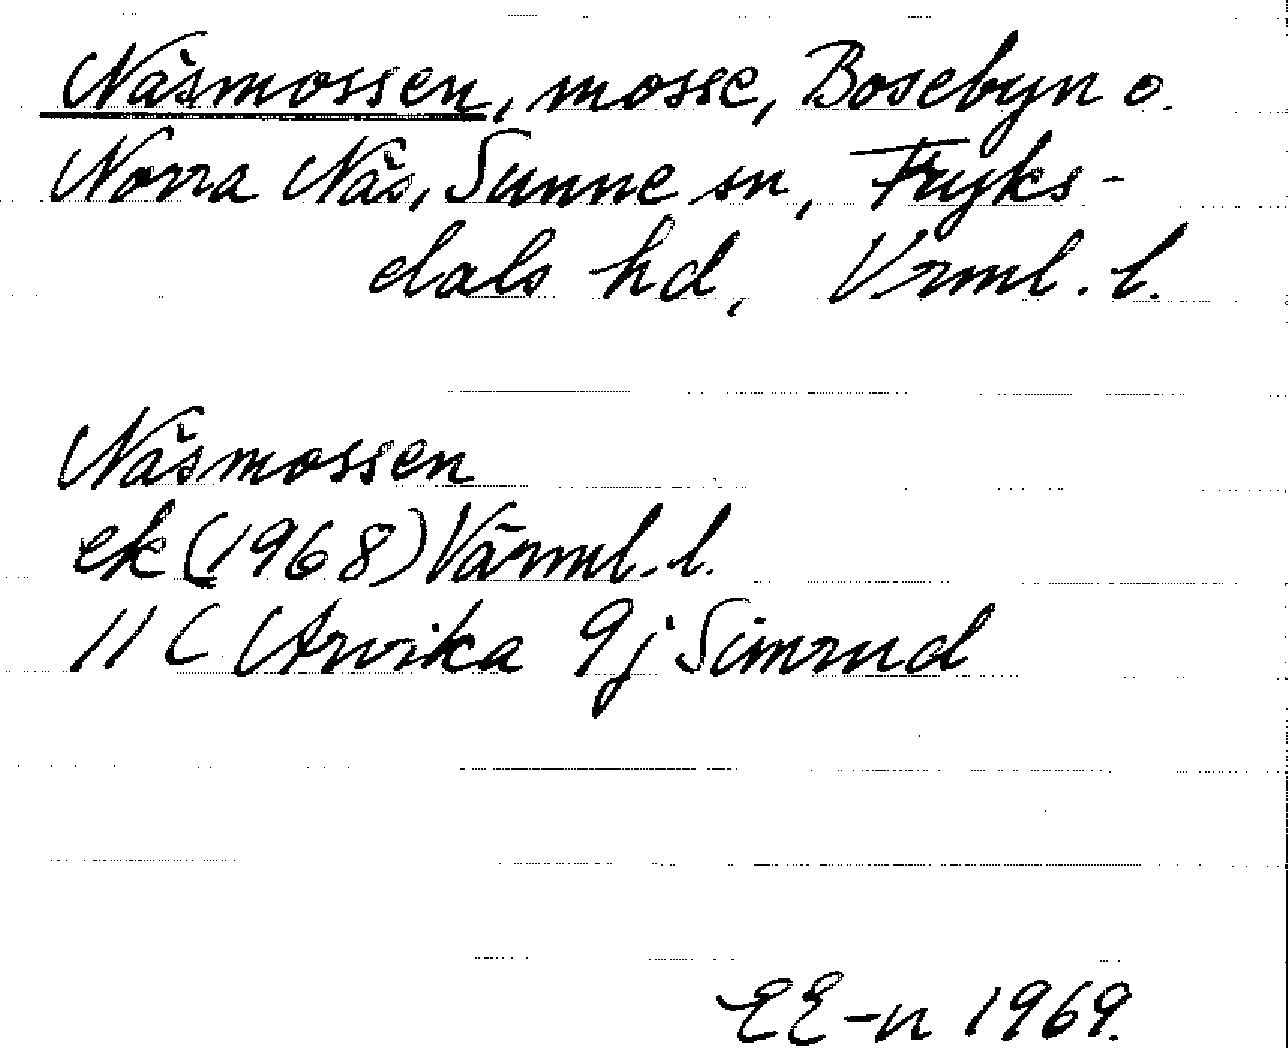 Näsmossen, mosse, Bosebyn o.
Norra Näs, Sunne sn, Fryks-
dals hd, Vrml. l.
Näsmossen
ek (1968) Värml. l.
11 C Arvika 9j Simrud
EE-n 1969.